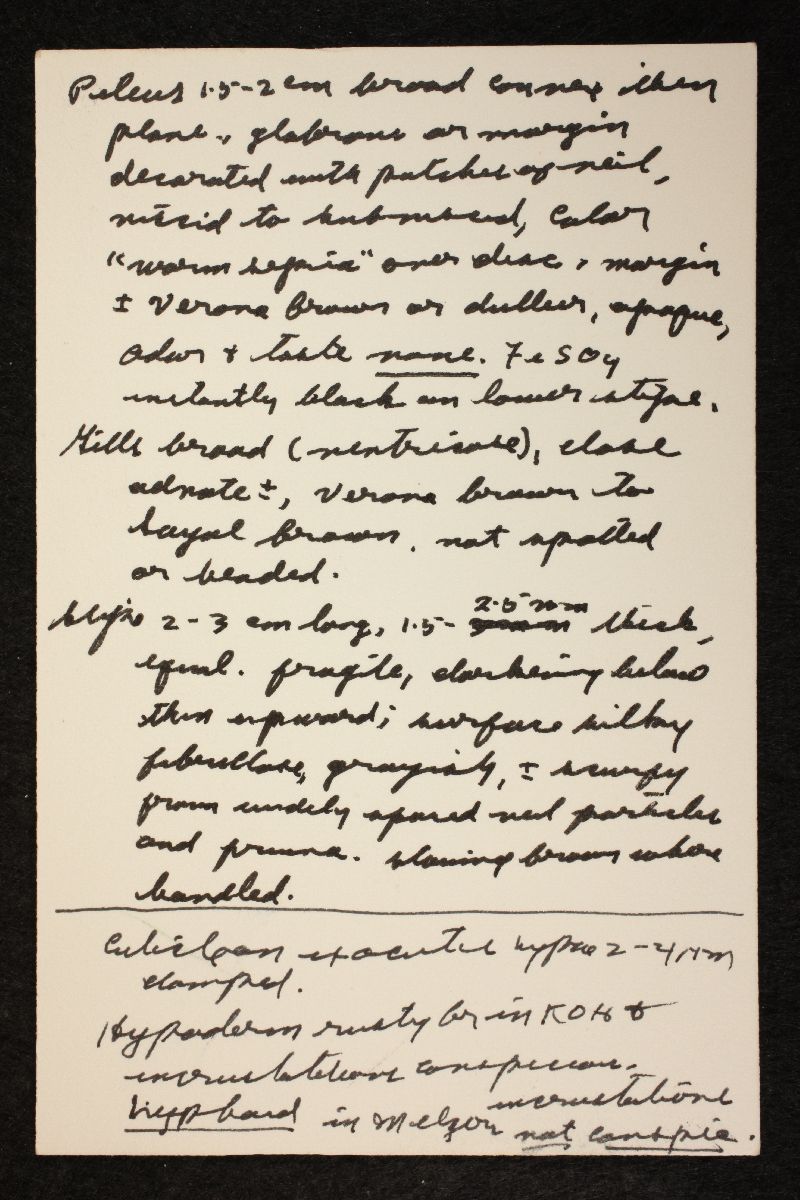 Pileus 1.5-2 cm broad convex then
plane, glabrous or margin
decorated with patches of veil,
viscid to subviscid, color
"warm sepia" over disc, margin
± Verona brown or duller, opaque,
odor + taste none. FeSO4
instantly black on lower stipe.
Gills broad (ventricose), close
adnate ±, Verona brown to
Sayal brown, not spotted
or beaded.
Stipe 2-3 cm long, 1.5- 2.5 mm thick,
equal. fragile, darkening below
then upward; surface silky
fibrillose, grayish, ± scurfy
from widely spaced veil particles
and pruina. staining brown where
handled.
Cuticle an ixocutis hyphae 2-4 µm
clamped.
Hypoderm rusty br in KOH +
incrustations conspicuous.
Hyphoid in Melzer incrustations
not conspic.